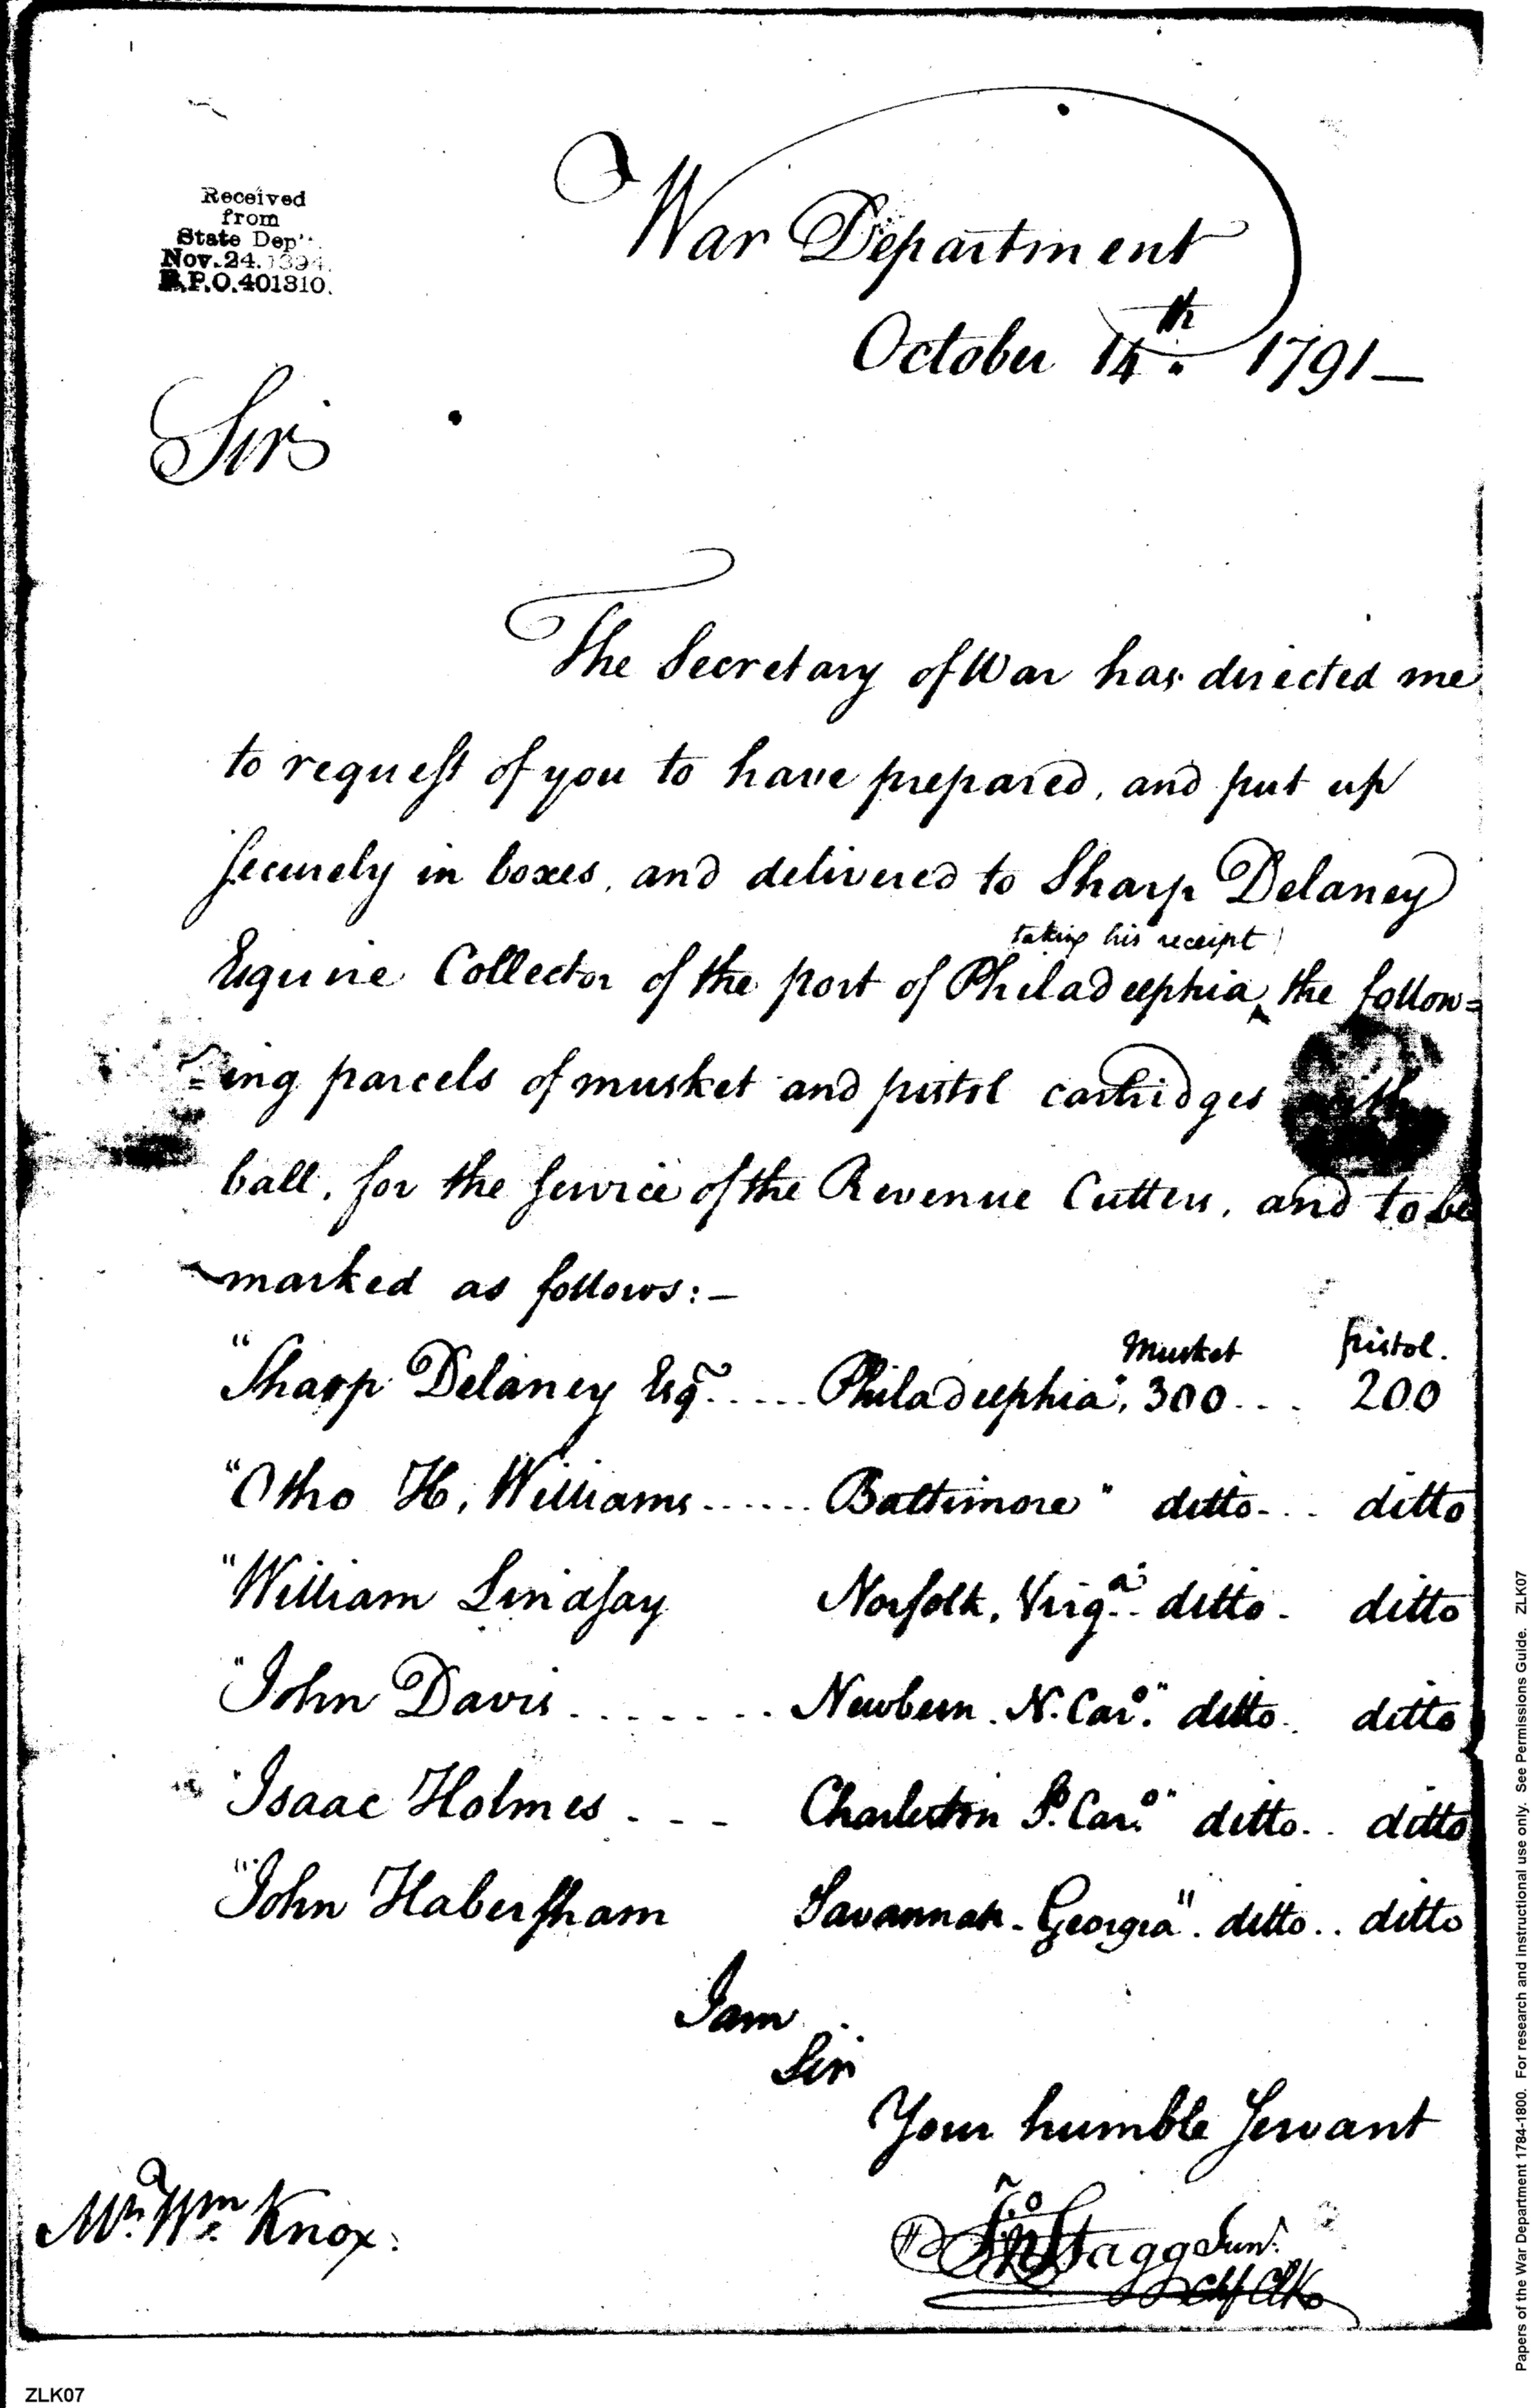 Received
from
State Dep't.
Nov. 24. 1894.
R.P.O. 401310.
War Department
October 14th. 1791 —
Sir
The Secretary of War has directed me
to request of you to have prepared, and put up
securely in boxes, and delivered to Sharp Delaney
taking his receipt
Esquire Collector of the port of Philadelphia, the follow=
=ing parcels of musket and pistol cartridges with
ball, for the service of the Revenue Cutters, and to be
marked as follows: —
Musket pistol.
"Sharp Delaney Esqr. ..... Philadelphia", 300 ... 200
"Otho H. Williams ...... Baltimore" ditto ... ditto
"William Lindsay Norfolk, Virga. ditto - ditto
"John Davis ....... Newbern. N. Caro." ditto .. ditto
"Isaac Holmes - - - Charleston So. Caro." ditto .. ditto
"John Habersham Savannah - Georgia". ditto .. ditto
I am
Sir
Your humble Servant
Jno Stagg Junr.
Chf Clk
Mr. Wm. Knox.
Papers of the War Department 1784-1800. For research and instructional use only. See Permissions Guide. ZLK07
ZLK07